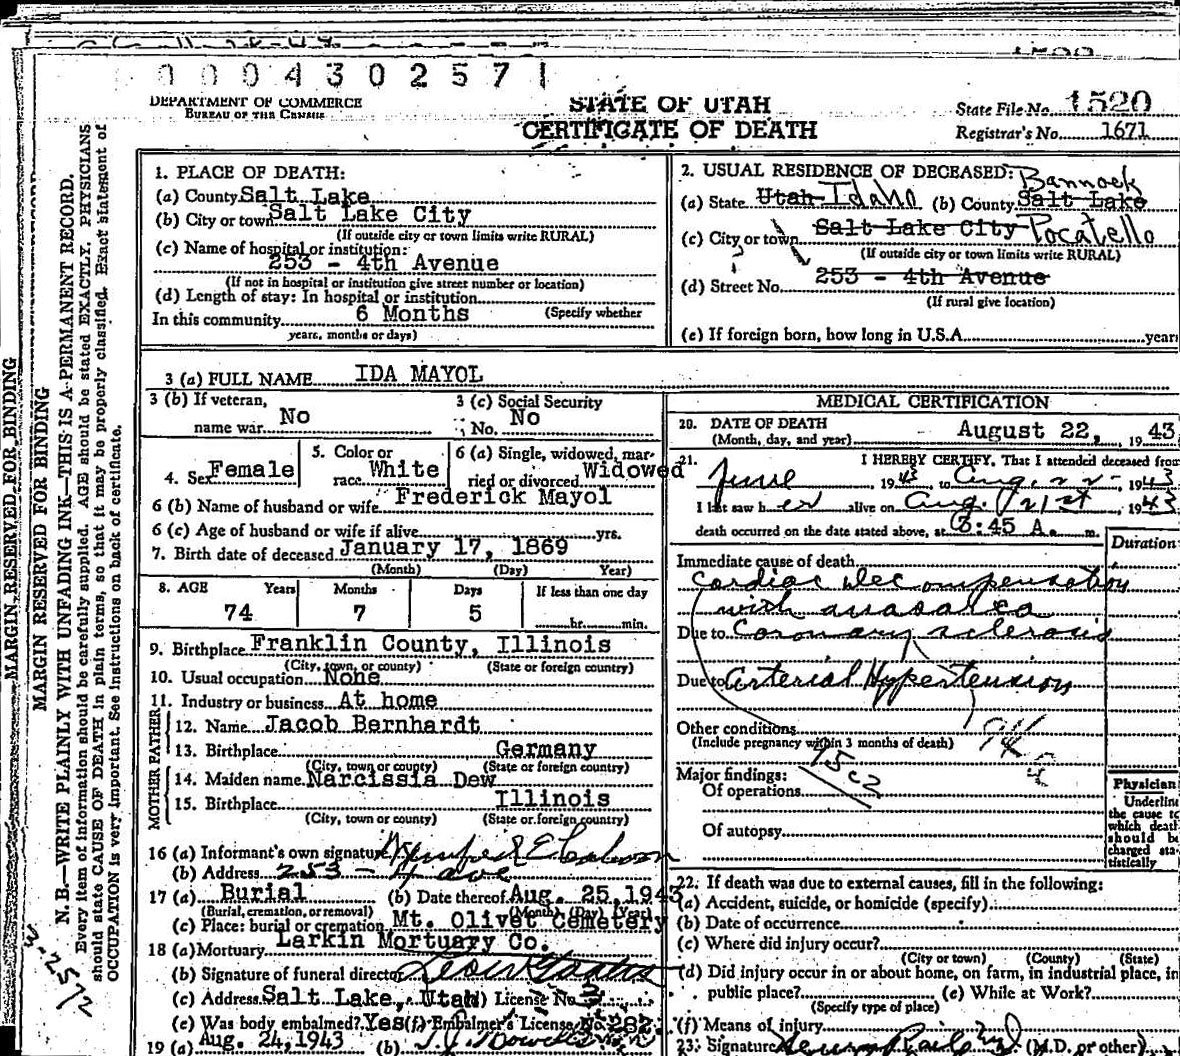 0004302571
DEPARTMENT OF COMMERCE
BUREAU OF THE CENSUS
STATE OF UTAH
CERTIFICATE OF DEATH
State File No. 1520
Registrar's No. 1671
MARGIN RESERVED FOR BINDING
MARGIN RESERVED FOR BINDING
N. B.—WRITE PLAINLY WITH UNFADING INK—THIS IS A PERMANENT RECORD.
Every item of information should be carefully supplied. AGE should be stated EXACTLY. PHYSICIANS
should state CAUSE OF DEATH in plain terms, so that it may be properly classified. Exact statement of
OCCUPATION is very important. See instructions on back of certificate.
1. PLACE OF DEATH:
(a) County Salt Lake
(b) City or town Salt Lake City
(If outside city or town limits write RURAL)
(c) Name of hospital or institution:
253 - 4th Avenue
(If not in hospital or institution give street number or location)
(d) Length of stay: In hospital or institution
In this community 6 Months (Specify whether
years, months or days)
2. USUAL RESIDENCE OF DECEASED: Bannock
(a) State Utah Idaho (b) County Salt Lake
(c) City or town Salt Lake City Pocatello
(If outside city or town limits write RURAL)
(d) Street No. 253 - 4th Avenue
(If rural give location)
(e) If foreign born, how long in U.S.A. years
3 (a) FULL NAME IDA MAYOL
3 (b) If veteran,
name war No
3 (c) Social Security
No. No
4. Sex Female
5. Color or
race White
6 (a) Single, widowed, mar-
ried or divorced Widowed
6 (b) Name of husband or wife Frederick Mayol
6 (c) Age of husband or wife if alive yrs.
7. Birth date of deceased January 17, 1869
(Month) (Day) Year)
8. AGE Years Months Days If less than one day
74 7 5 hr. min.
9. Birthplace Franklin County, Illinois
(City, town, or county) (State or foreign country)
10. Usual occupation None
11. Industry or business At home
FATHER
12. Name Jacob Bernhardt
13. Birthplace Germany
(City, town or county) (State or foreign country)
MOTHER
14. Maiden name Narcissia Dew
15. Birthplace Illinois
(City, town or county) (State or foreign country)
16 (a) Informant's own signature
(b) Address 253 - 4 ave
17 (a) Burial (b) Date thereof Aug. 25, 1943
(Burial, cremation, or removal) (Month) (Day) (Year)
(c) Place: burial or cremation Mt. Olivet Cemetery
18 (a) Mortuary Larkin Mortuary Co.
(b) Signature of funeral director
(c) Address Salt Lake, Utah License No.
(e) Was body embalmed? Yes (f) Embalmer's License No.
19 (a) Aug. 24, 1943 (b)
MEDICAL CERTIFICATION
20. DATE OF DEATH
(Month, day, and year) August 22, 1943
21. I HEREBY CERTIFY, That I attended deceased from
June 1943 to Aug. 22 - 1943
I last saw her alive on Aug. 21st, 1943
death occurred on the date stated above, at 8:45 A. m.
Duration
Immediate cause of death
Cardiac decompensation
with anasarca
Due to Coronary sclerosis
Due to Arterial Hypertension
Other conditions
(Include pregnancy within 3 months of death)
Major findings:
Of operations
Of autopsy
Physician
Underline
the cause to
which death
should be
charged sta-
tistically
22. If death was due to external causes, fill in the following:
(a) Accident, suicide, or homicide (specify)
(b) Date of occurrence
(c) Where did injury occur?
(City or town) (County) (State)
(d) Did injury occur in or about home, on farm, in industrial place, in
public place? (e) While at Work?
(Specify type of place)
(f) Means of injury
23. Signature (M.D. or other)